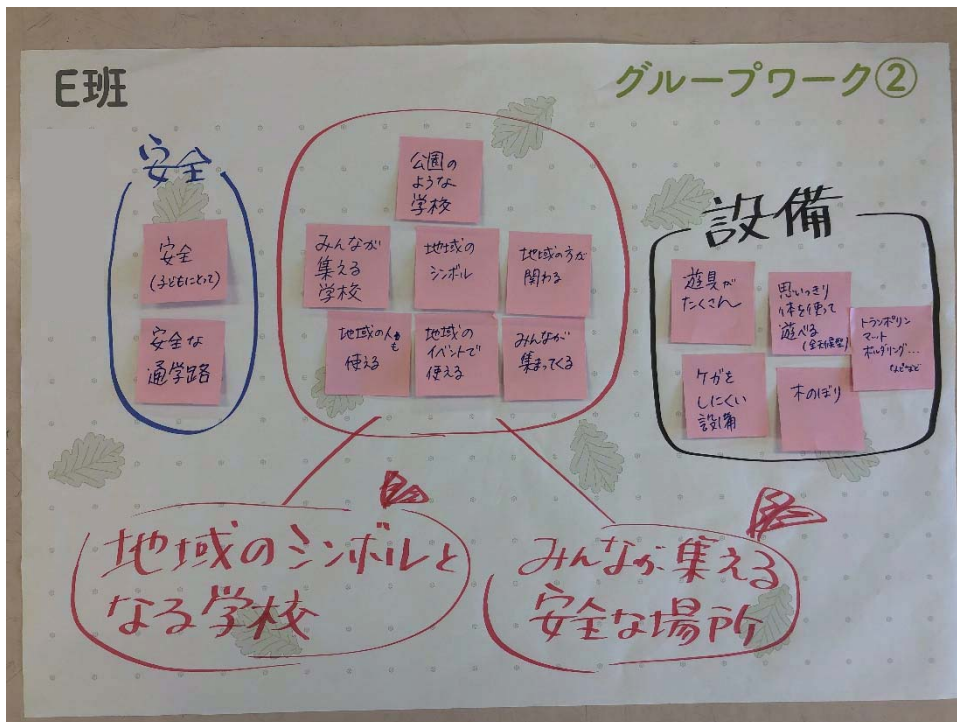 E班
グループワーク②
安全
安全
(子どもにとって)
安全な
通学路
公園の
ような
学校
みんなが
集える
学校
地域の
シンボル
地域の方が
関わる
地域の人も
使える
地域の
イベントで
使える
みんなが
集まってくる
設備
遊具が
たくさん
思いっきり
体を使って
遊べる
トランポリン
マット
ボルダリング…
などなど
ケガを
しにくい
設備
木のぼり
地域のシンボルと
なる学校
みんなが集える
安全な場所